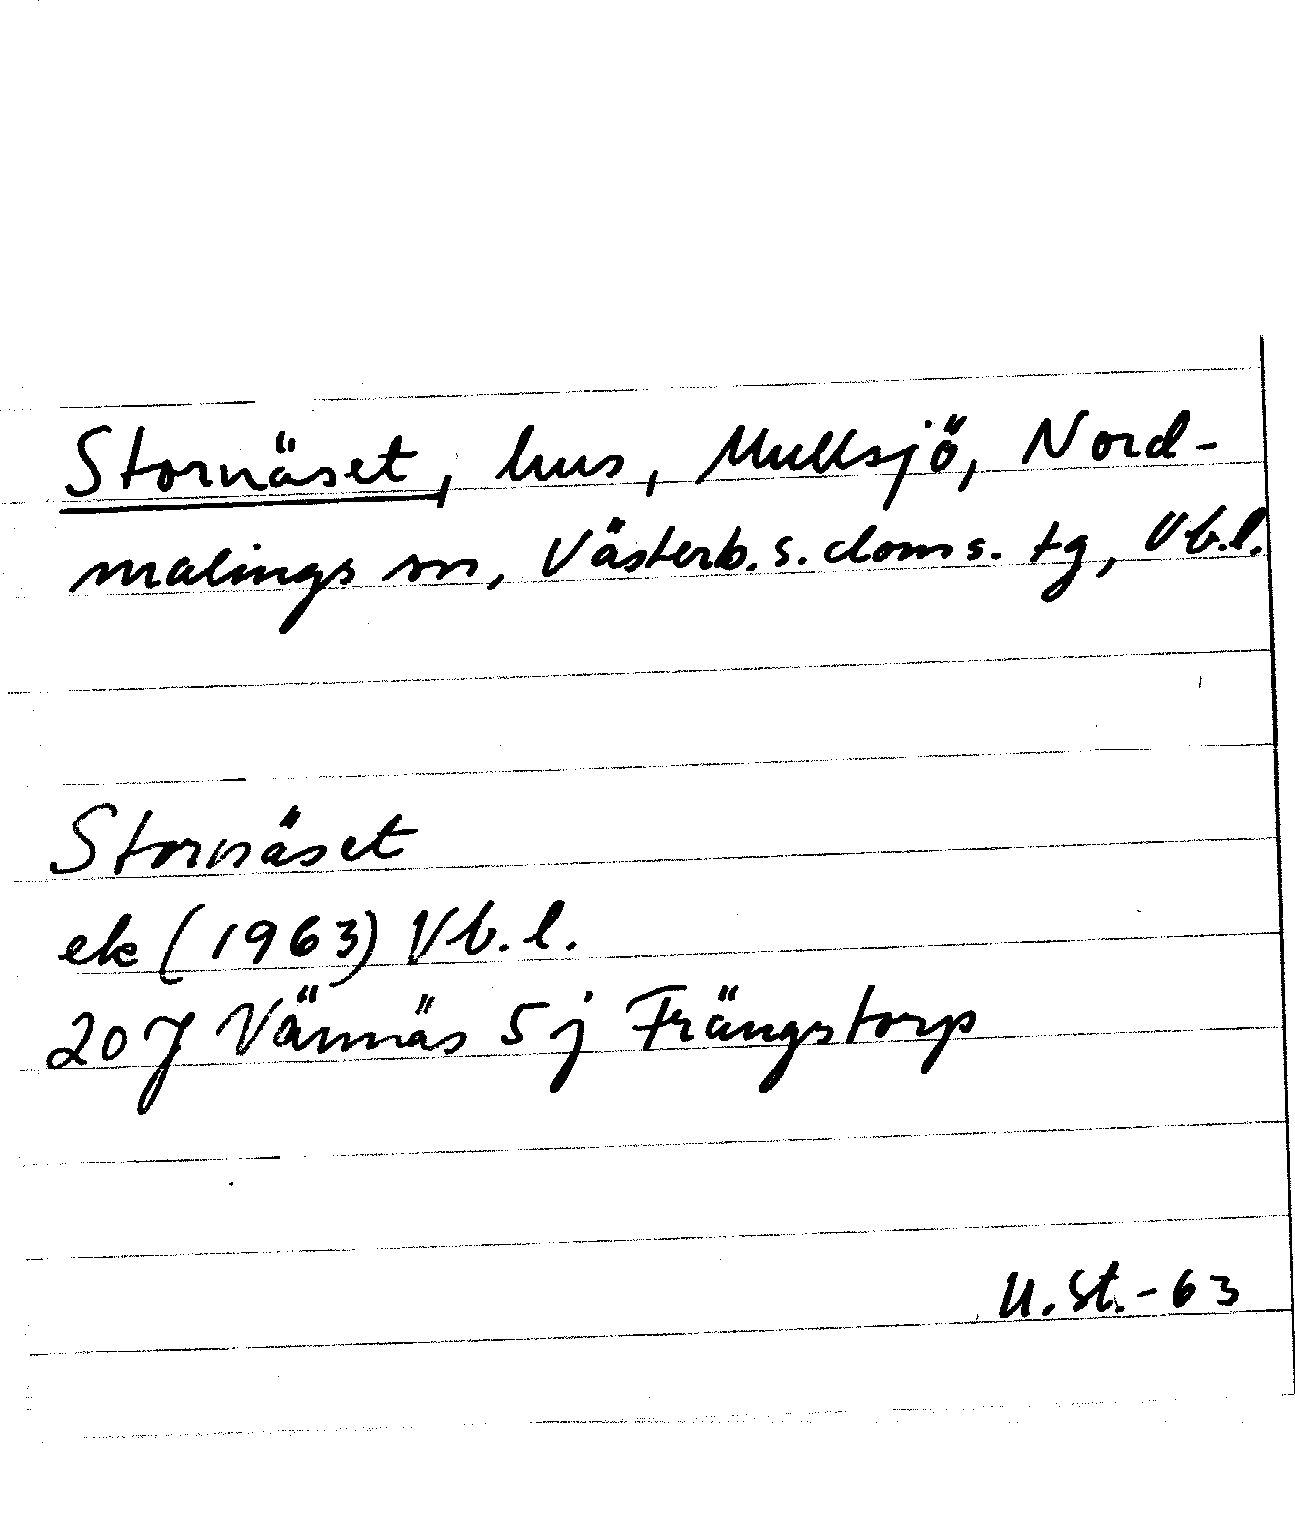 Stornäset, hus, Mullsjö, Nord-
malings sn, Västerb. s. doms. tg, Vb.l.
Stornäset
ek (1963) Vb.l.
20J Vännäs 5j Frängstorp
U.St.-63